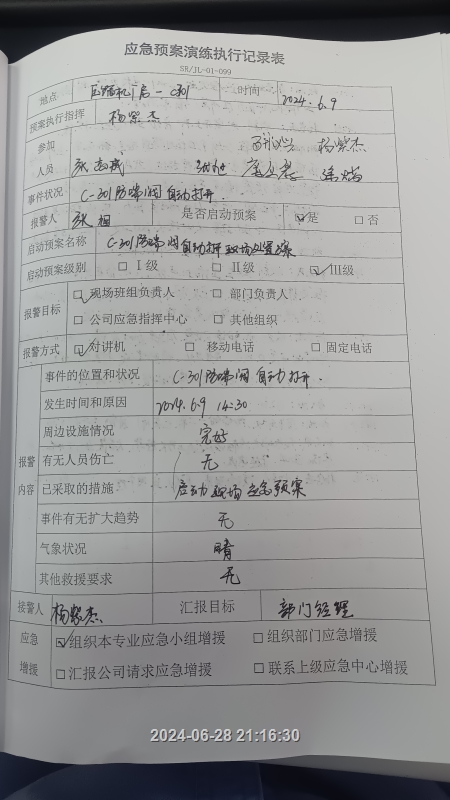 应急预案演练执行记录表
SR/JL-01-099
地点 压缩机厂房-C301 时间 2024.6.9
预案执行指挥 杨紫杰
参加人员 杨紫杰
事件状况 C-301防喘阀自动打开.
报警人 是否启动预案 ☑是 □否
启动预案名称 C-301防喘阀自动打开现场处置预案
启动预案级别 □Ⅰ级 □Ⅱ级 ☑Ⅲ级
报警目标 ☑现场班组负责人 □部门负责人
□公司应急指挥中心 □其他组织
报警方式 ☑对讲机 □移动电话 □固定电话
报警内容
事件的位置和状况 C-301防喘阀自动打开.
发生时间和原因 2024.6.9 14:30
周边设施情况 完好
有无人员伤亡 无
已采取的措施 启动现场应急预案
事件有无扩大趋势 无
气象状况 晴
其他救援要求 无
接警人 杨紫杰 汇报目标 部门经理
应急增援 ☑组织本专业应急小组增援 □组织部门应急增援
□汇报公司请求应急增援 □联系上级应急中心增援
2024-06-28 21:16:30